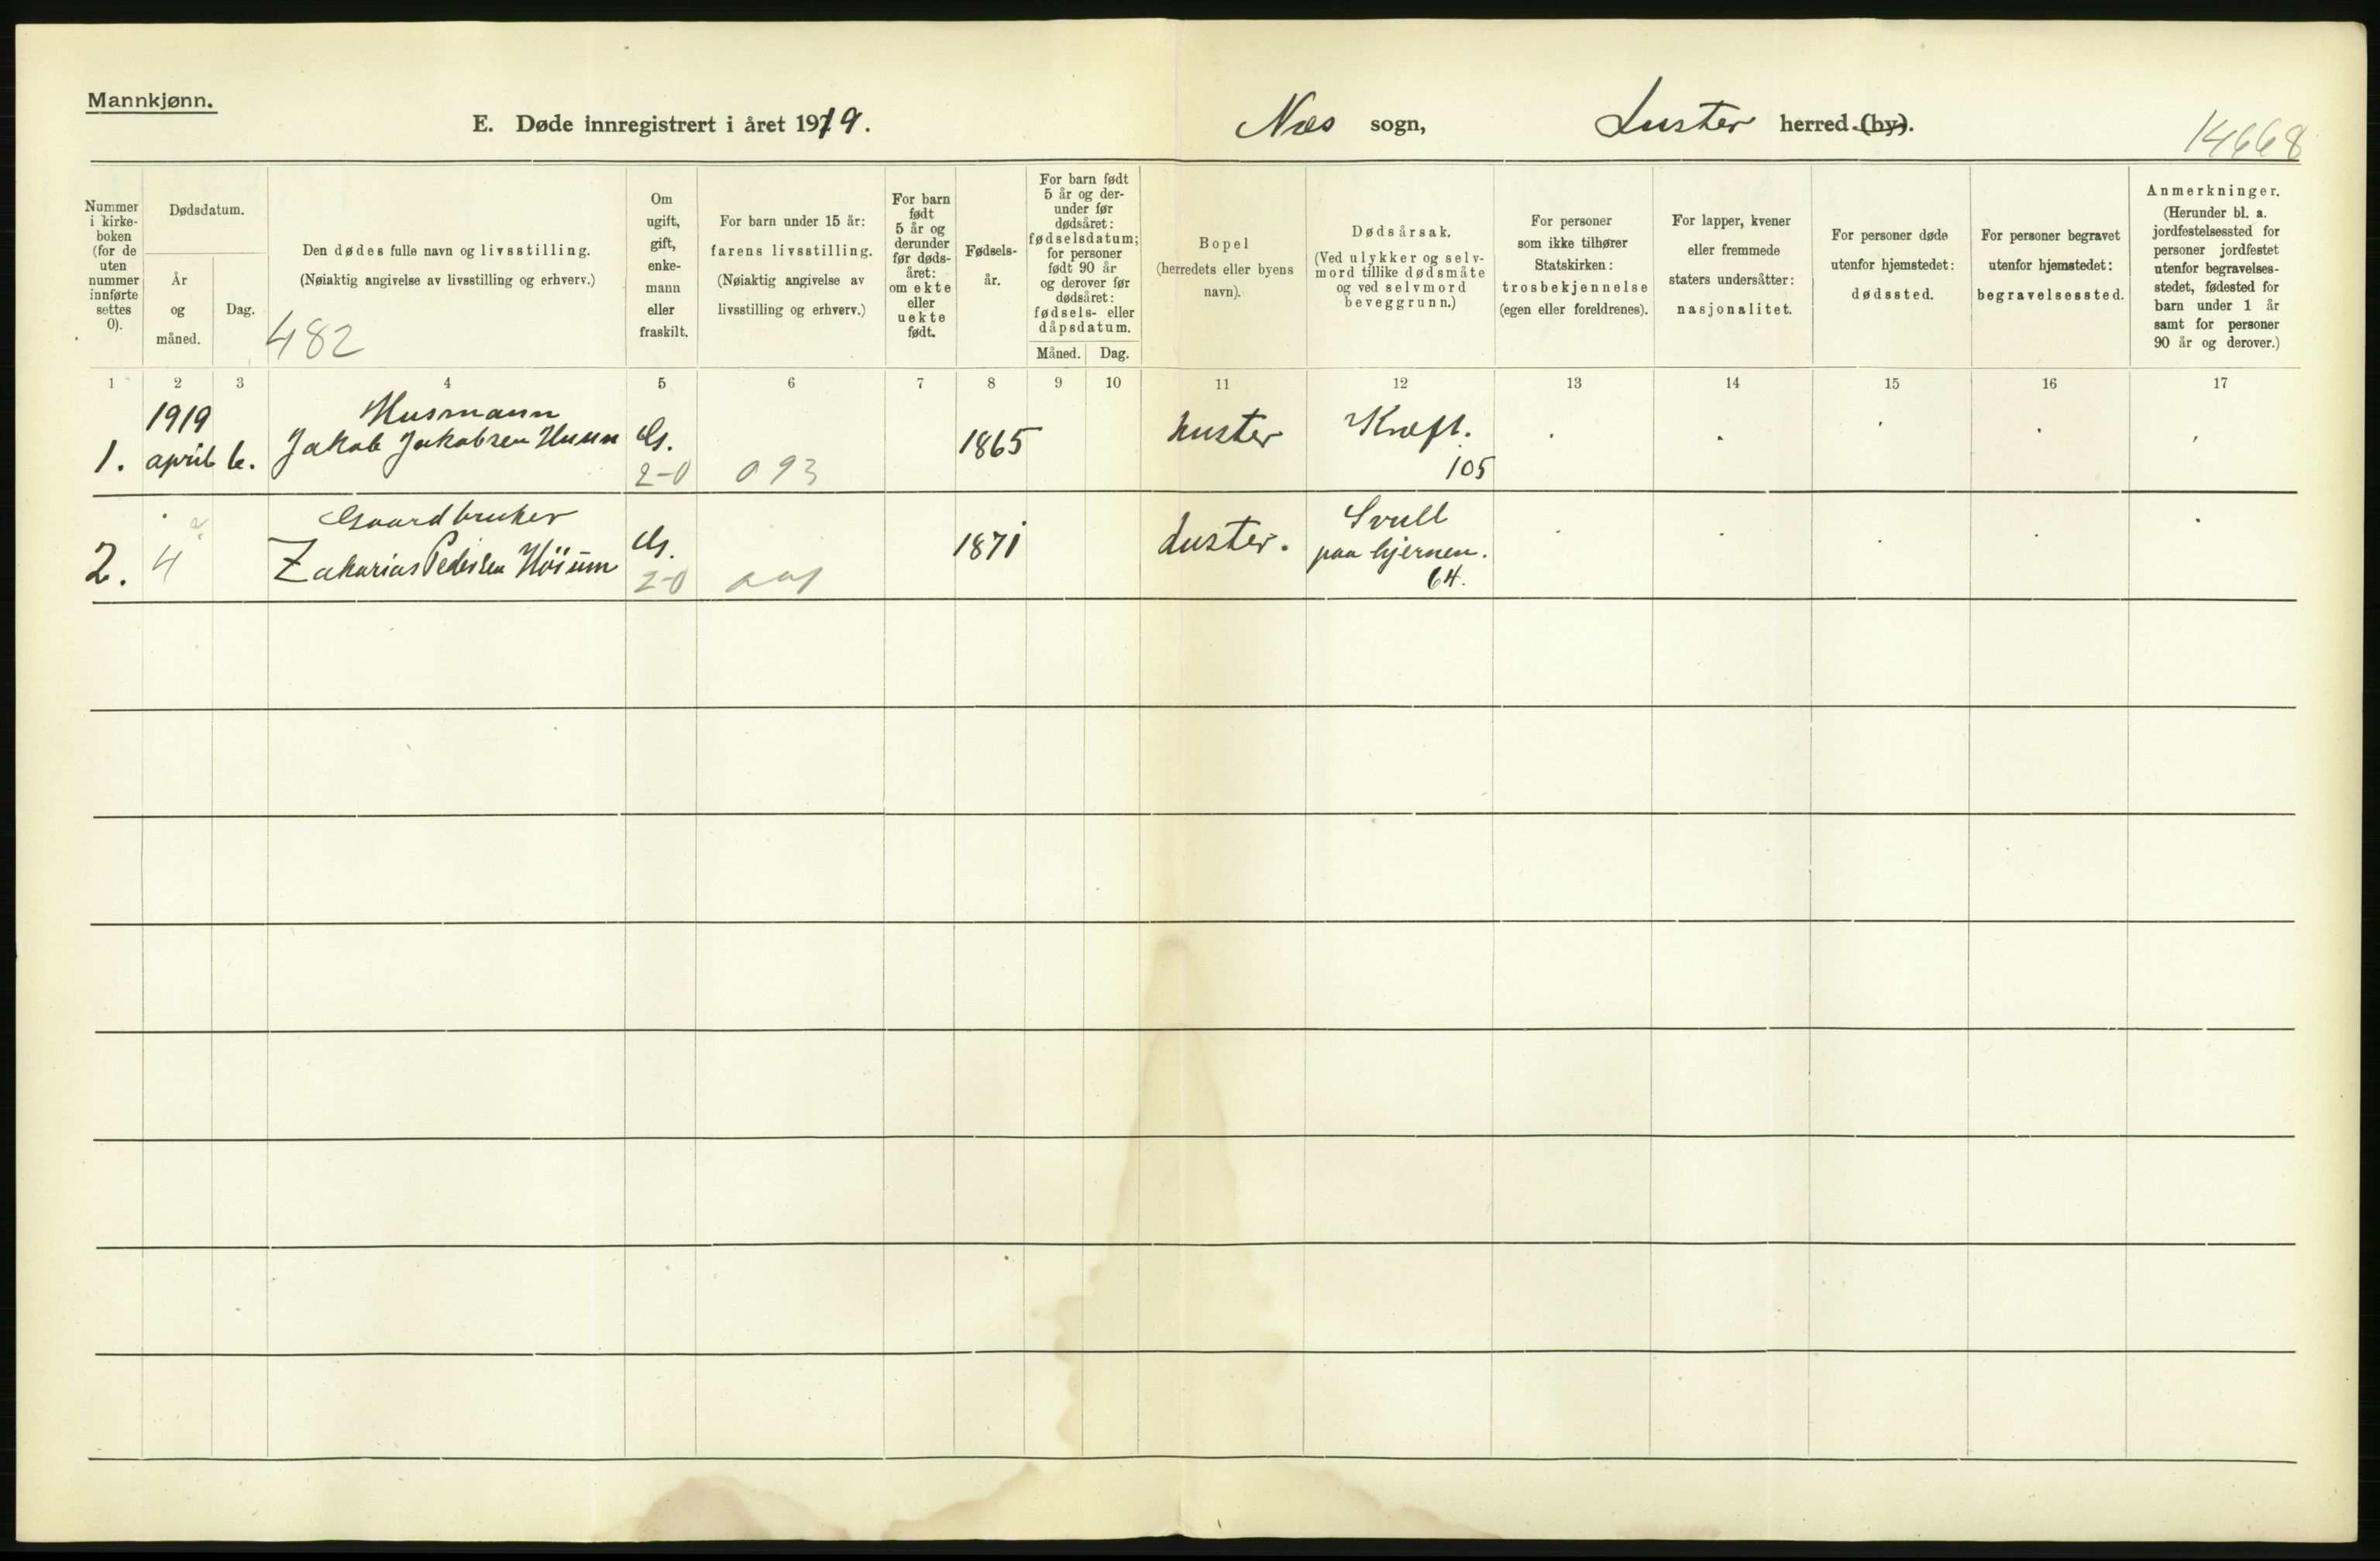 Mannkjønn.
E. Døde innregistrert i året 1919.
Næs sogn, Luster herred (by).
14668
Nummer i kirke-boken (for de uten nummer innførte settes 0).
Dødsdatum.
År og måned.
Dag.
Den dødes fulle navn og livsstilling.
(Nøiaktig angivelse av livsstilling og erhverv.)
482
Om ugift, gift, enke-mann eller fraskilt.
For barn under 15 år:
farens livsstilling.
(Nøiaktig angivelse av
livsstilling og erhverv.)
For barn født 5 år og derunder før døds-året: om ekte eller uekte født.
Fødsels-år.
For barn født
5 år og der-
under før
dødsåret:
fødselsdatum;
for personer
født 90 år
og derover før
dødsåret:
fødsels- eller
dåpsdatum.
Måned. Dag.
Bopel
(herredets eller byens
navn).
Dødsårsak.
(Ved ulykker og selv-
mord tillike dødsmåte
og ved selvmord
beveggrunn.)
For personer
som ikke tilhører
Statskirken:
trosbekjennelse
(egen eller foreldrenes).
For lapper, kvener
eller fremmede
staters undersåtter:
nasjonalitet.
For personer døde
utenfor hjemstedet:
dødssted.
For personer begravet
utenfor hjemstedet:
begravelsessted.
Anmerkninger.
(Herunder bl. a.
jordfestelsessted for
personer jordfestet
utenfor begravelses-
stedet, fødested for
barn under 1 år
samt for personer
90 år og derover.)
1 2 3 4 5 6 7 8 9 10 11 12 13 14 15 16 17
1919 Husmann
1. april 6. Jakob Jakobsen Huun G. 1865 Luster Kræft.
2-0 093 105
Gaardbruker
2. 4 Zakarias Pedersen Høium G. 1871 Luster. Svull
paa hjernen.
2-0 64.